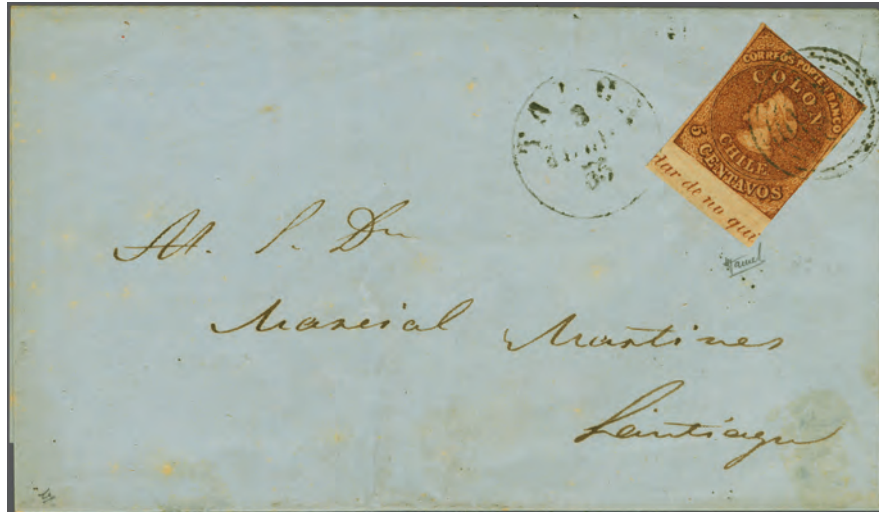 CORREOS PORTE FRANCO
COLON
CHILE
5 CENTAVOS
dar de no qui
TALCA
3
55
At. S. Dn
Marcial Martines
Santiago